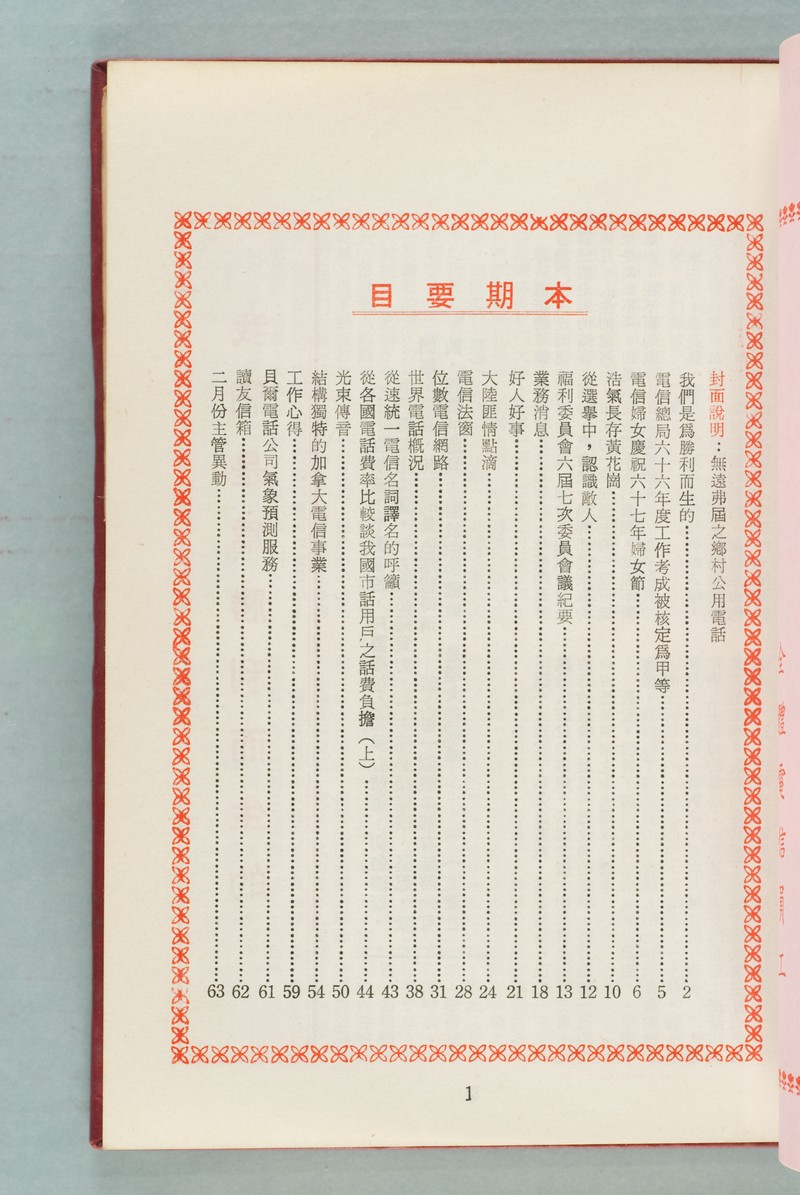 本期要目
封面說明：無遠弗屆之鄉村公用電話
我們是爲勝利而生的……2
電信總局六十六年度工作考成被核定爲甲等……5
電信婦女慶祝六十七年婦女節……6
浩氣長存黃花崗……10
從選舉中，認識敵人……12
福利委員會六屆七次委員會議紀要……13
業務消息……18
好人好事……21
大陸匪情點滴……24
電信法窗……28
位數電信網路……31
世界電話概況……38
從速統一電信名詞譯名的呼籲……43
從各國電話費率比較談我國市話用戶之話費負擔（上）……44
光束傳音……50
結構獨特的加拿大電信事業……54
工作心得……59
貝爾電話公司氣象預測服務……61
讀友信箱……62
二月份主管異動……63
1